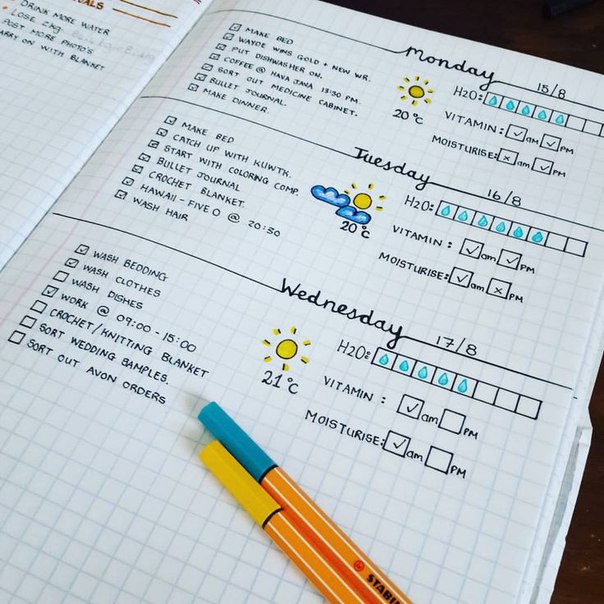 DRINK MORE WATER
LOSE 2kg
POST MORE PHOTO'S
ARRY ON WITH BLANKET
Monday
15/8
MAKE BED
WAYDE WINS GOLD + NEW WR.
PUT DISHWASHER ON.
COFFEE @ HAVA JAVA 13:30 PM.
SORT OUT MEDICINE CABINET.
BULLET JOURNAL.
MAKE DINNER.
20°C
H2O:
VITAMIN: am PM
MOISTURISE: am PM
Tuesday
16/8
MAKE BED
CATCH UP WITH KUWTK.
START WITH COLORING COMP.
BULLET JOURNAL
CROCHET BLANKET.
HAWAII-FIVE O @ 20:30
WASH HAIR
20°C
H2O:
VITAMIN: am PM
MOISTURISE: am PM
Wednesday
17/8
WASH BEDDING
WASH CLOTHES
WASH DISHES
WORK @ 09:00-15:00
CROCHET/KNITTING BLANKET
SORT WEDDING SAMPLES.
SORT OUT AVON ORDERS
21°C
H2O:
VITAMIN: am PM
MOISTURISE: am PM
STABIL